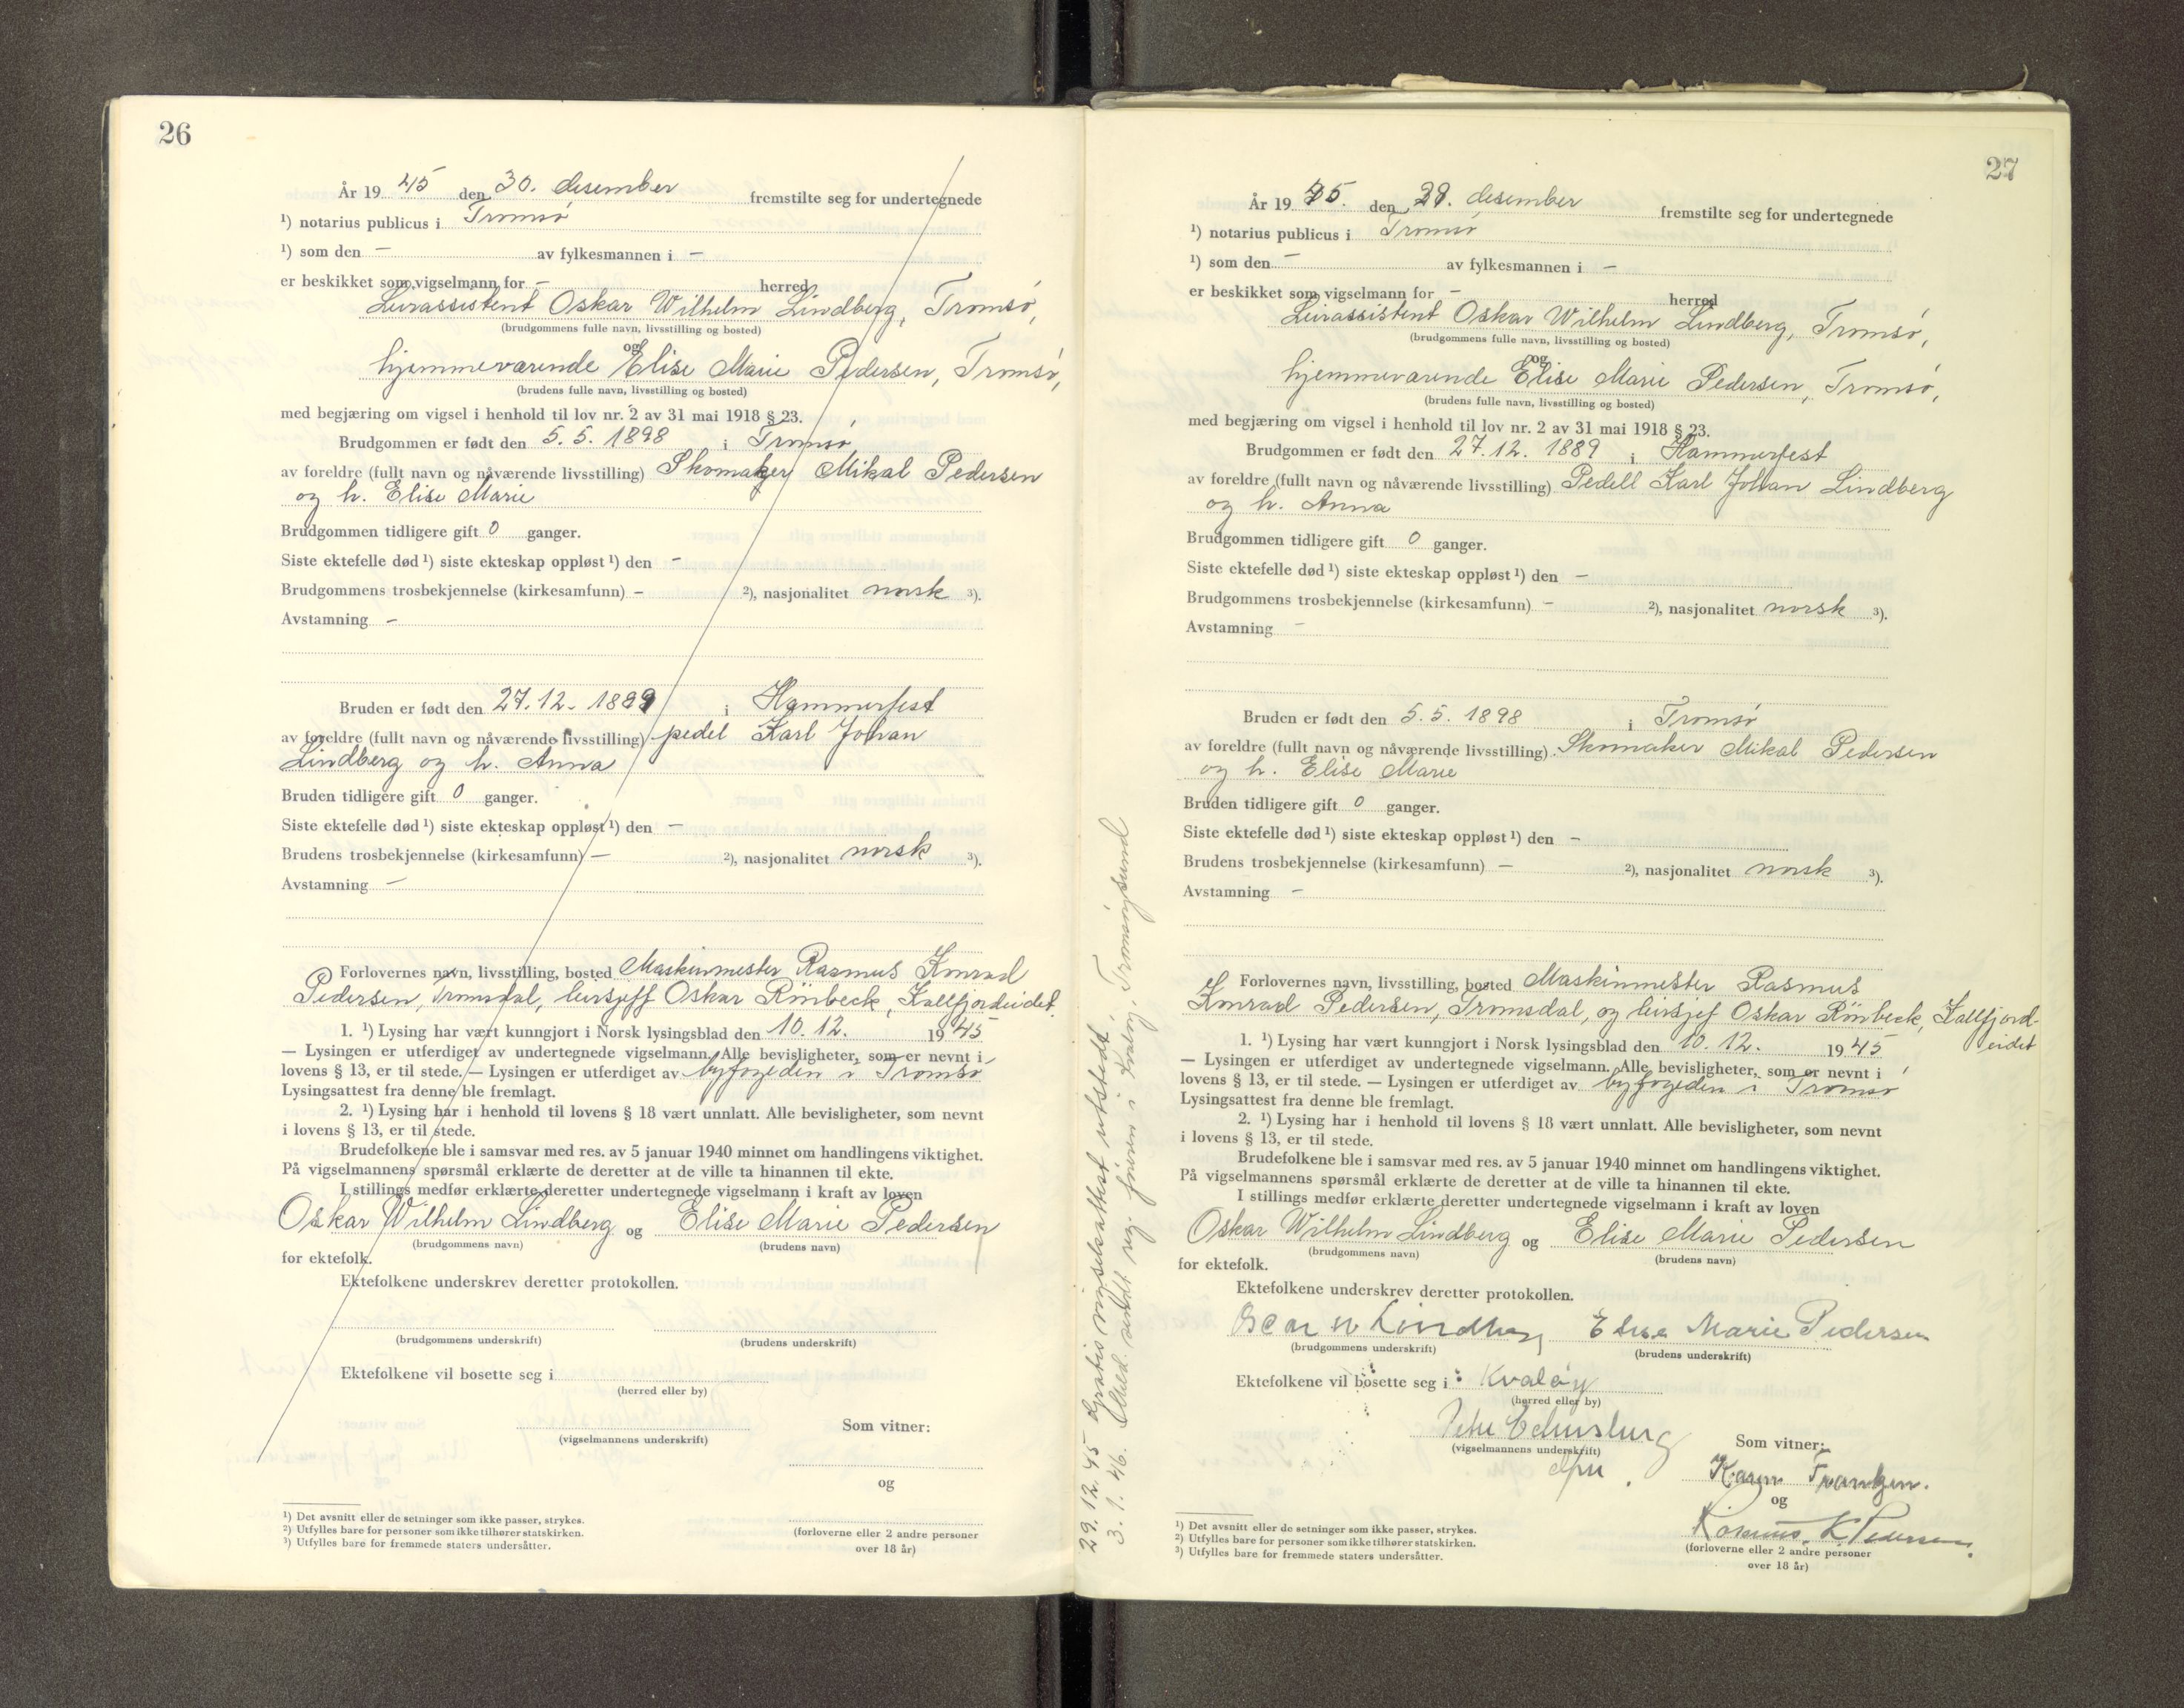 26
År 19 45 den 30. desember fremstilte seg for undertegnede
¹) notarius publicus i Tromsø
¹) som den – av fylkesmannen i –
er beskikket som vigselmann for – herred
Leirassistent Oskar Wilhelm Lindberg, Tromsø,
(brudgommens fulle navn, livsstilling og bosted)
og
hjemmeværende Elise Marie Pedersen, Tromsø,
(brudens fulle navn, livsstilling og bosted)
med begjæring om vigsel i henhold til lov nr. 2 av 31 mai 1918 § 23.
Brudgommen er født den 5. 5. 1898 i Tromsø
av foreldre (fullt navn og nåværende livsstilling) Skomaker Mikal Pedersen
og h. Elise Marie
Brudgommen tidligere gift 0 ganger.
Siste ektefelle død ¹) siste ekteskap oppløst ¹) den –
Brudgommens trosbekjennelse (kirkesamfunn) – ²), nasjonalitet norsk ³).
Avstamning –
Bruden er født den 27. 12. 1889 i Hammerfest
av foreldre (fullt navn og nåværende livsstilling) pedel Karl Johan
Lindberg og h. Anna
Bruden tidligere gift 0 ganger.
Siste ektefelle død ¹) siste ekteskap oppløst ¹) den –
Brudens trosbekjennelse (kirkesamfunn) – ²), nasjonalitet norsk ³).
Avstamning –
Forlovernes navn, livsstilling, bosted Maskinmester Rasmus Konrad
Pedersen, Tromsdal, leirsjeff Oskar Rönbeck, Kallfjordeidet.
1. ¹) Lysing har vært kunngjort i Norsk lysingsblad den 10. 12. 19 45
— Lysingen er utferdiget av undertegnede vigselmann. Alle bevisligheter, som er nevnt i
lovens § 13, er til stede. — Lysingen er utferdiget av byfogeden i Tromsø
Lysingsattest fra denne ble fremlagt.
2. ¹) Lysing har i henhold til lovens § 18 vært unnlatt. Alle bevisligheter, som nevnt
i lovens § 13, er til stede.
Brudefolkene ble i samsvar med res. av 5 januar 1940 minnet om handlingens viktighet.
På vigselmannens spørsmål erklærte de deretter at de ville ta hinannen til ekte.
I stillings medfør erklærte deretter undertegnede vigselmann i kraft av loven
Oskar Wilhelm Lindberg og Elise Marie Pedersen
(brudgommens navn) (brudens navn)
for ektefolk.
Ektefolkene underskrev deretter protokollen.
(brudgommens underskrift) (brudens underskrift)
Ektefolkene vil bosette seg i
(herred eller by)
Som vitner:
(vigselmannens underskrift)
og
(forloverne eller 2 andre personer
over 18 år)
¹) Det avsnitt eller de setninger som ikke passer, strykes.
²) Utfylles bare for personer som ikke tilhører statskirken.
³) Utfylles bare for fremmede staters undersåtter.
27
År 19 45. den 29. desember fremstilte seg for undertegnede
¹) notarius publicus i Tromsø
¹) som den – av fylkesmannen i –
er beskikket som vigselmann for – herred
Leirassistent Oskar Wilhelm Lindberg, Tromsø,
(brudgommens fulle navn, livsstilling og bosted)
og
hjemmeværende Elise Marie Pedersen, Tromsø,
(brudens fulle navn, livsstilling og bosted)
med begjæring om vigsel i henhold til lov nr. 2 av 31 mai 1918 § 23.
Brudgommen er født den 27. 12. 1889 i Hammerfest
av foreldre (fullt navn og nåværende livsstilling) Pedell Karl Johan Lindberg
og h. Anna
Brudgommen tidligere gift 0 ganger.
Siste ektefelle død ¹) siste ekteskap oppløst ¹) den –
Brudgommens trosbekjennelse (kirkesamfunn) – ²), nasjonalitet norsk ³).
Avstamning –
Bruden er født den 5. 5. 1898 i Tromsø
av foreldre (fullt navn og nåværende livsstilling) Skomaker Mikal Pedersen
og h. Elise Marie
Bruden tidligere gift 0 ganger.
Siste ektefelle død ¹) siste ekteskap oppløst ¹) den –
Brudens trosbekjennelse (kirkesamfunn) – ²), nasjonalitet norsk ³).
Avstamning –
Forlovernes navn, livsstilling, bosted Maskinmester Rasmus
Konrad Pedersen, Tromsdal, og leirsjef Oskar Rönbeck, Kallfjord-
eidet
1. ¹) Lysing har vært kunngjort i Norsk lysingsblad den 10. 12. 19 45
— Lysingen er utferdiget av undertegnede vigselmann. Alle bevisligheter, som er nevnt i
lovens § 13, er til stede. — Lysingen er utferdiget av byfogeden i Tromsø
Lysingsattest fra denne ble fremlagt.
2. ¹) Lysing har i henhold til lovens § 18 vært unnlatt. Alle bevisligheter, som nevnt
i lovens § 13, er til stede.
Brudefolkene ble i samsvar med res. av 5 januar 1940 minnet om handlingens viktighet.
På vigselmannens spørsmål erklærte de deretter at de ville ta hinannen til ekte.
I stillings medfør erklærte deretter undertegnede vigselmann i kraft av loven
Oskar Wilhelm Lindberg og Elise Marie Pedersen
(brudgommens navn) (brudens navn)
for ektefolk.
Ektefolkene underskrev deretter protokollen.
Oscar W Lindberg Elise Marie Pedersen
(brudgommens underskrift) (brudens underskrift)
Ektefolkene vil bosette seg i: Kvaløy
(herred eller by)
(vigselmannens underskrift)
Som vitner:
Karen
og
Rasmus K Pedersen.
(forloverne eller 2 andre personer
over 18 år)
¹) Det avsnitt eller de setninger som ikke passer, strykes.
²) Utfylles bare for personer som ikke tilhører statskirken.
³) Utfylles bare for fremmede staters undersåtter.
29. 12. 45 Gratis vigselsattest utstedt.
3. 1. 46. Meld. sendt reg. føreren i Kvaløy, Tromsøysund